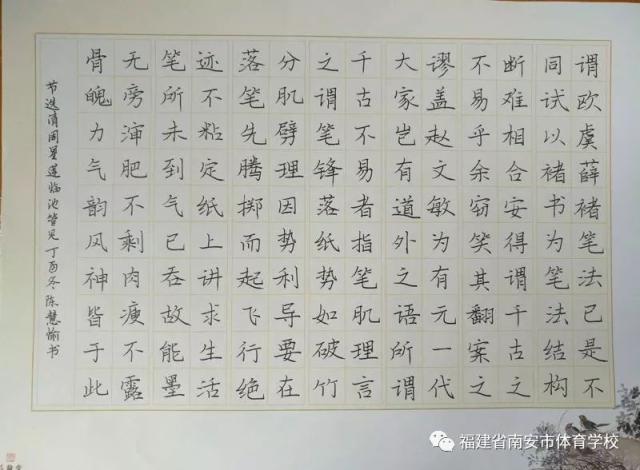 谓欧虞薛褚笔法已是不
同试以褚书为笔法结构
断难相合安得谓千古之
不易乎余窃笑其翻案之
谬盖赵文敏为有元一代
大家岂有道外之语所谓
千古不易者指笔肌理言
之谓笔锋落纸势如破竹
分肌劈理因势利导要在
落笔先腾掷而起飞行绝
迹不粘定纸上讲求生活
笔所未到气已吞故能墨
无旁渖肥不剩肉瘦不露
骨魄力气韵风神皆于此
节选清周星莲临池管见丁酉冬陈慧愉书
福建省南安市体育学校